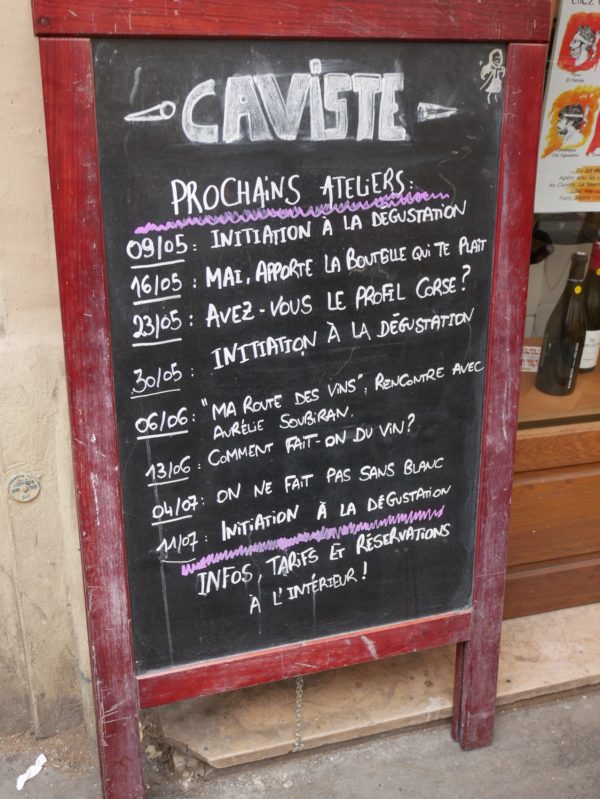 CAVISTE
PROCHAINS ATELIERS:
09/05: INITIATION À LA DEGUSTATION
16/05: MAI, APPORTE LA BOUTEILLE QUI TE PLAÎT
23/05: AVEZ-VOUS LE PROFIL CORSE?
30/05: INITIATION À LA DÉGUSTATION
06/06: "MA ROUTE DES VINS", RENCONTRE AVEC
AURÉLIE SOUBIRAN.
13/06: COMMENT FAIT-ON DU VIN?
04/07: ON NE FAIT PAS SANS BLANC
11/07: INITIATION À LA DÉGUSTATION
INFOS, TARIFS & RÉSERVATIONS
À L'INTÉRIEUR!